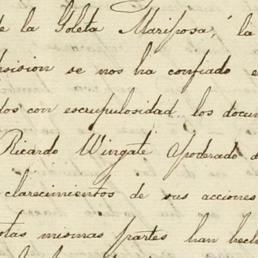 de la Goleta Mariposa, la
sision se nos ha confiado e
dos con escrupulosidad los docu
Ricardo Wingate apoderado d
clarecimientos de sus acciones
otas mismas partes han hecho